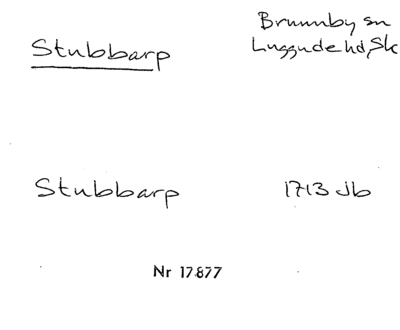 Stubbarp
Brunnby sn
Luggude hd, Sk
Stubbarp
1713 Jb
Nr 17877